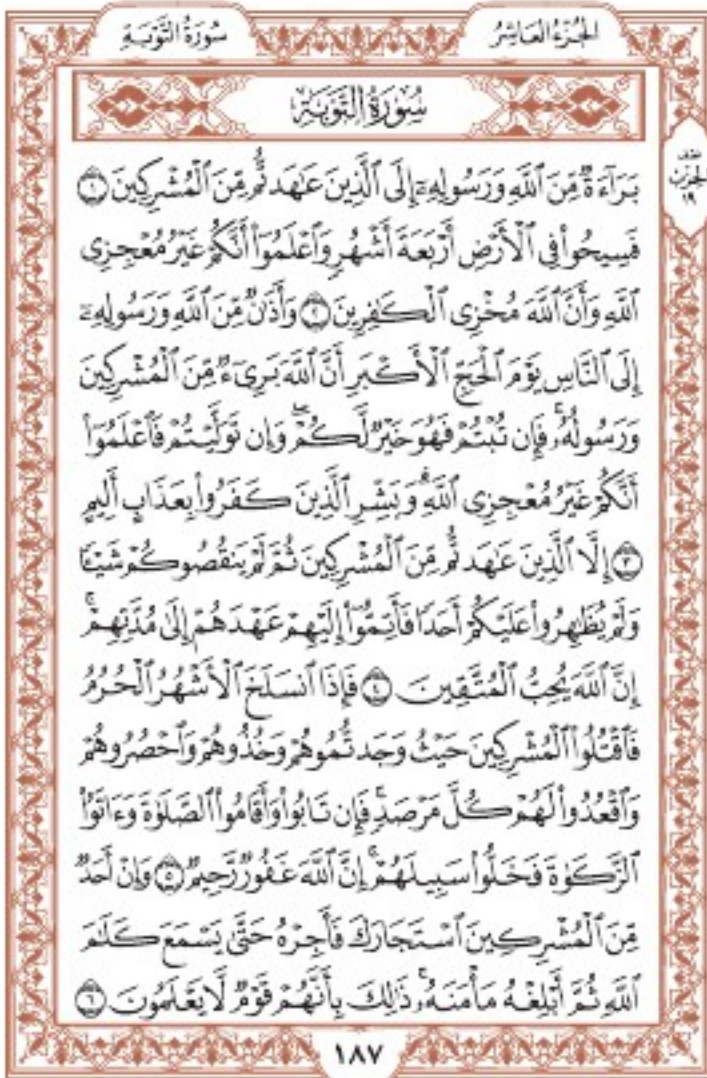 سُورَةُ التَّوْبَةِ
الجُزْءُ العَاشِرُ
سُورَةُ التَّوْبَةِ
نصف
الحزب
١٩
بَرَآءَةٌ مِّنَ ٱللَّهِ وَرَسُولِهِۦٓ إِلَى ٱلَّذِينَ عَٰهَدتُّم مِّنَ ٱلْمُشْرِكِينَ ۝١
فَسِيحُوا۟ فِى ٱلْأَرْضِ أَرْبَعَةَ أَشْهُرٍ وَٱعْلَمُوٓا۟ أَنَّكُمْ غَيْرُ مُعْجِزِى
ٱللَّهِ وَأَنَّ ٱللَّهَ مُخْزِى ٱلْكَٰفِرِينَ ۝٢ وَأَذَٰنٌ مِّنَ ٱللَّهِ وَرَسُولِهِۦٓ
إِلَى ٱلنَّاسِ يَوْمَ ٱلْحَجِّ ٱلْأَكْبَرِ أَنَّ ٱللَّهَ بَرِىٓءٌ مِّنَ ٱلْمُشْرِكِينَ
وَرَسُولُهُۥ ۚ فَإِن تُبْتُمْ فَهُوَ خَيْرٌ لَّكُمْ ۖ وَإِن تَوَلَّيْتُمْ فَٱعْلَمُوٓا۟
أَنَّكُمْ غَيْرُ مُعْجِزِى ٱللَّهِ ۗ وَبَشِّرِ ٱلَّذِينَ كَفَرُوا۟ بِعَذَابٍ أَلِيمٍ
۝٣ إِلَّا ٱلَّذِينَ عَٰهَدتُّم مِّنَ ٱلْمُشْرِكِينَ ثُمَّ لَمْ يَنقُصُوكُمْ شَيْـًٔا
وَلَمْ يُظَٰهِرُوا۟ عَلَيْكُمْ أَحَدًا فَأَتِمُّوٓا۟ إِلَيْهِمْ عَهْدَهُمْ إِلَىٰ مُدَّتِهِمْ ۚ
إِنَّ ٱللَّهَ يُحِبُّ ٱلْمُتَّقِينَ ۝٤ فَإِذَا ٱنسَلَخَ ٱلْأَشْهُرُ ٱلْحُرُمُ
فَٱقْتُلُوا۟ ٱلْمُشْرِكِينَ حَيْثُ وَجَدتُّمُوهُمْ وَخُذُوهُمْ وَٱحْصُرُوهُمْ
وَٱقْعُدُوا۟ لَهُمْ كُلَّ مَرْصَدٍ ۚ فَإِن تَابُوا۟ وَأَقَامُوا۟ ٱلصَّلَوٰةَ وَءَاتَوُا۟
ٱلزَّكَوٰةَ فَخَلُّوا۟ سَبِيلَهُمْ ۚ إِنَّ ٱللَّهَ غَفُورٌ رَّحِيمٌ ۝٥ وَإِنْ أَحَدٌ
مِّنَ ٱلْمُشْرِكِينَ ٱسْتَجَارَكَ فَأَجِرْهُ حَتَّىٰ يَسْمَعَ كَلَٰمَ
ٱللَّهِ ثُمَّ أَبْلِغْهُ مَأْمَنَهُۥ ۚ ذَٰلِكَ بِأَنَّهُمْ قَوْمٌ لَّا يَعْلَمُونَ ۝٦
١٨٧